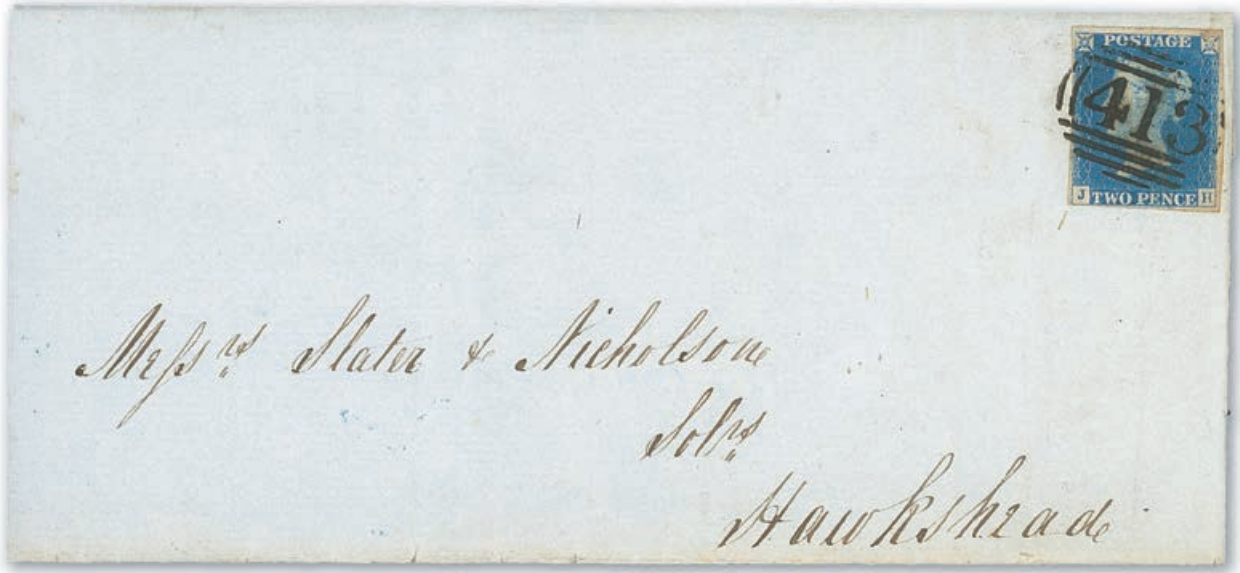 POSTAGE
413
J TWO PENCE H
Messrs Slater & Nicholson
Solrs
Hawkshead